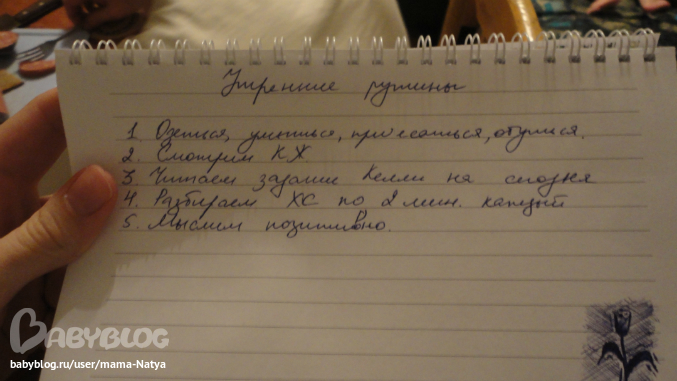 Утренние рутины
1. Одеться, умыться, причесаться, обуться.
2. Смотрим КЖ
3. Читаем задание Келли на сегодня
4. Разбираем ХС по 2 мин. каждый
5. Мыслим позитивно.
BABYBLOG
babyblog.ru/user/mama-Natya